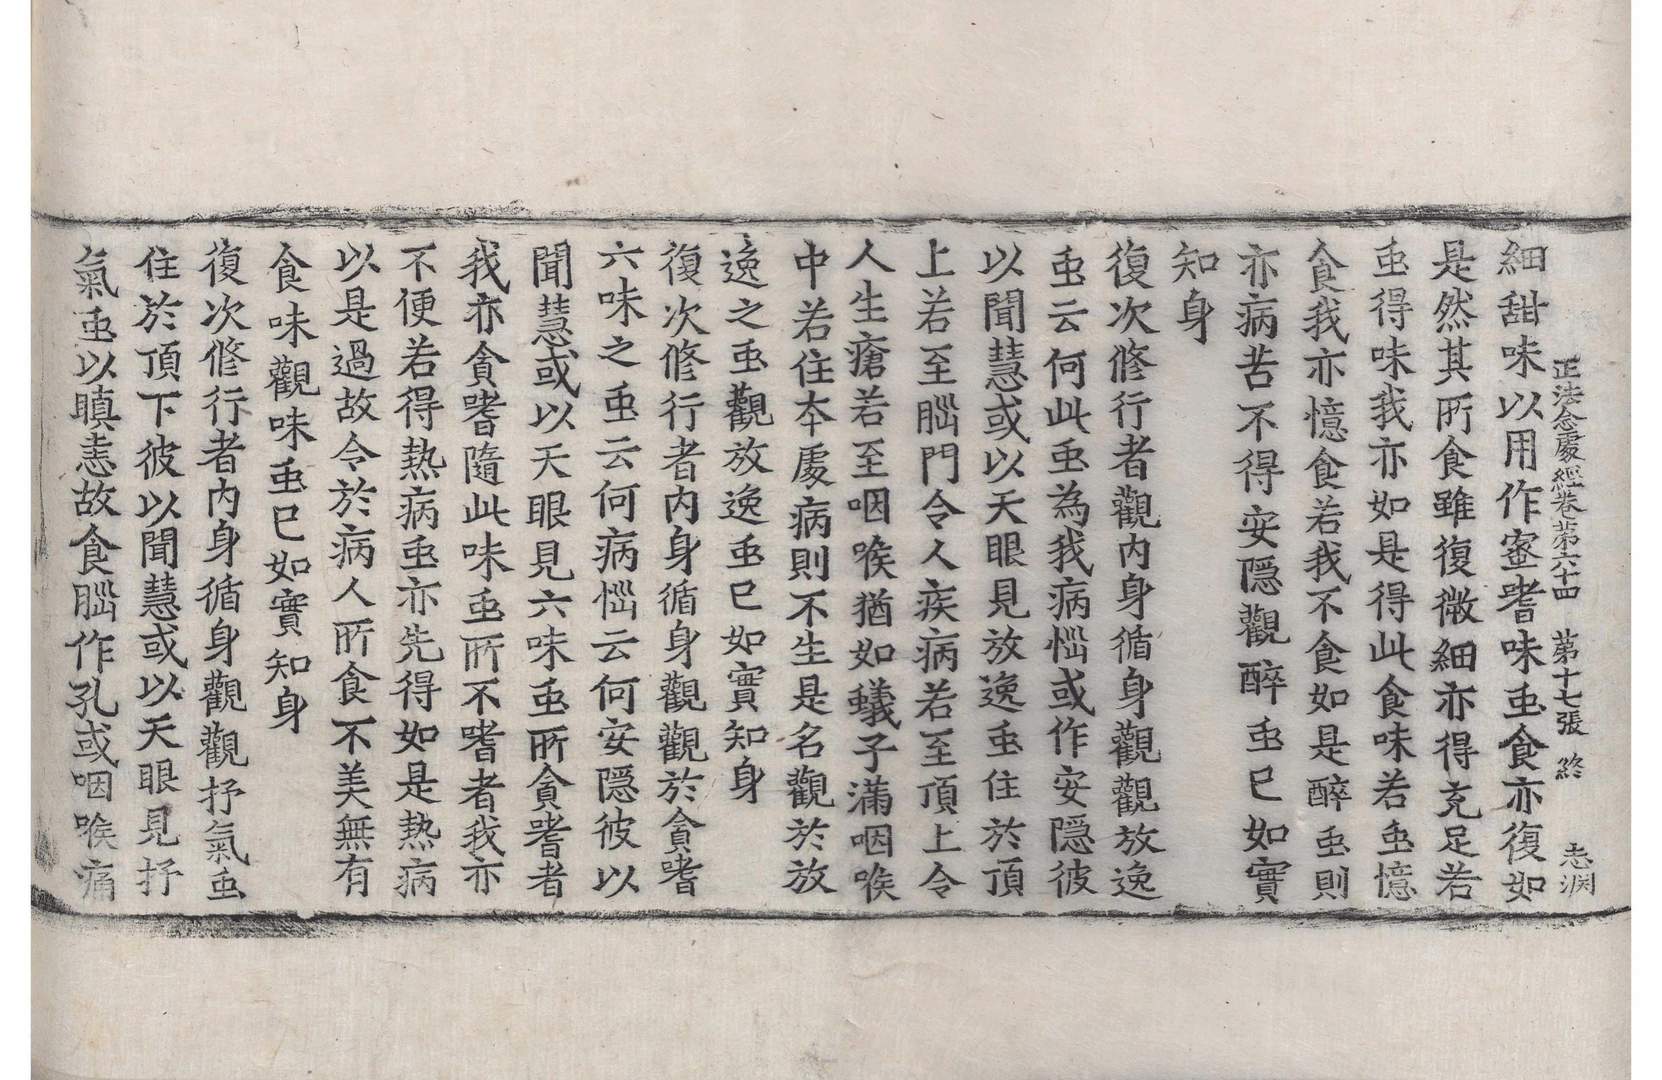 正法念處經卷第六十四 第十七張 終 志淵
細甜味以用作蜜嗜味䖝食亦復如
是然其所食雖復微細亦得充足若
䖝得味我亦如是得此食味若䖝憶
食我亦憶食若我不食如是醉䖝則
亦病苦不得安隱觀醉䖝已如實
知身
復次修行者觀內身循身觀觀放逸
䖝云何此䖝為我病惱或作安隱彼
以聞慧或以天眼見放逸䖝住於頂
上若至腦門令人疾病若至頂上令
人生瘡若至咽喉猶如蟻子滿咽喉
中若住本處病則不生是名觀於放
逸之䖝觀放逸䖝已如實知身
復次修行者內身循身觀觀於貪嗜
六味之䖝云何病惱云何安隱彼以
聞慧或以天眼見六味䖝所貪嗜者
我亦貪嗜隨此味䖝所不嗜者我亦
不便若得熱病䖝亦先得如是熱病
以是過故令於病人所食不美無有
食味觀味䖝已如實知身
復次修行者內身循身觀觀抒氣䖝
住於頂下彼以聞慧或以天眼見抒
氣䖝以瞋恚故食腦作孔或咽喉痛